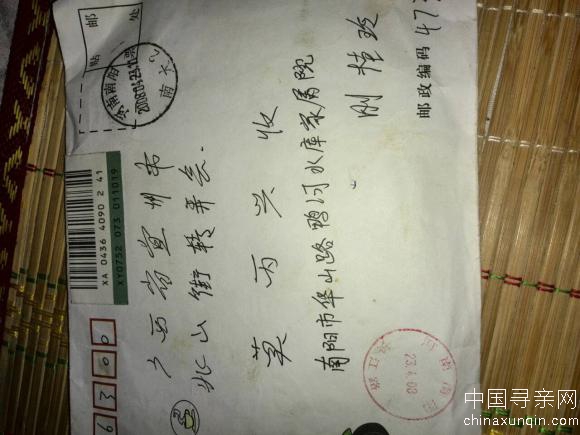 贴 邮
处
2008.04.23
XA 0436 4090 2 41
XY0752 073 011019
广西省宜州市
北山街转
莫丙兴 收
南阳市华山路鸭河水库家属院
刚桂玲
邮政编码 47
23.4.08
中国寻亲网
chinaxunqin.com